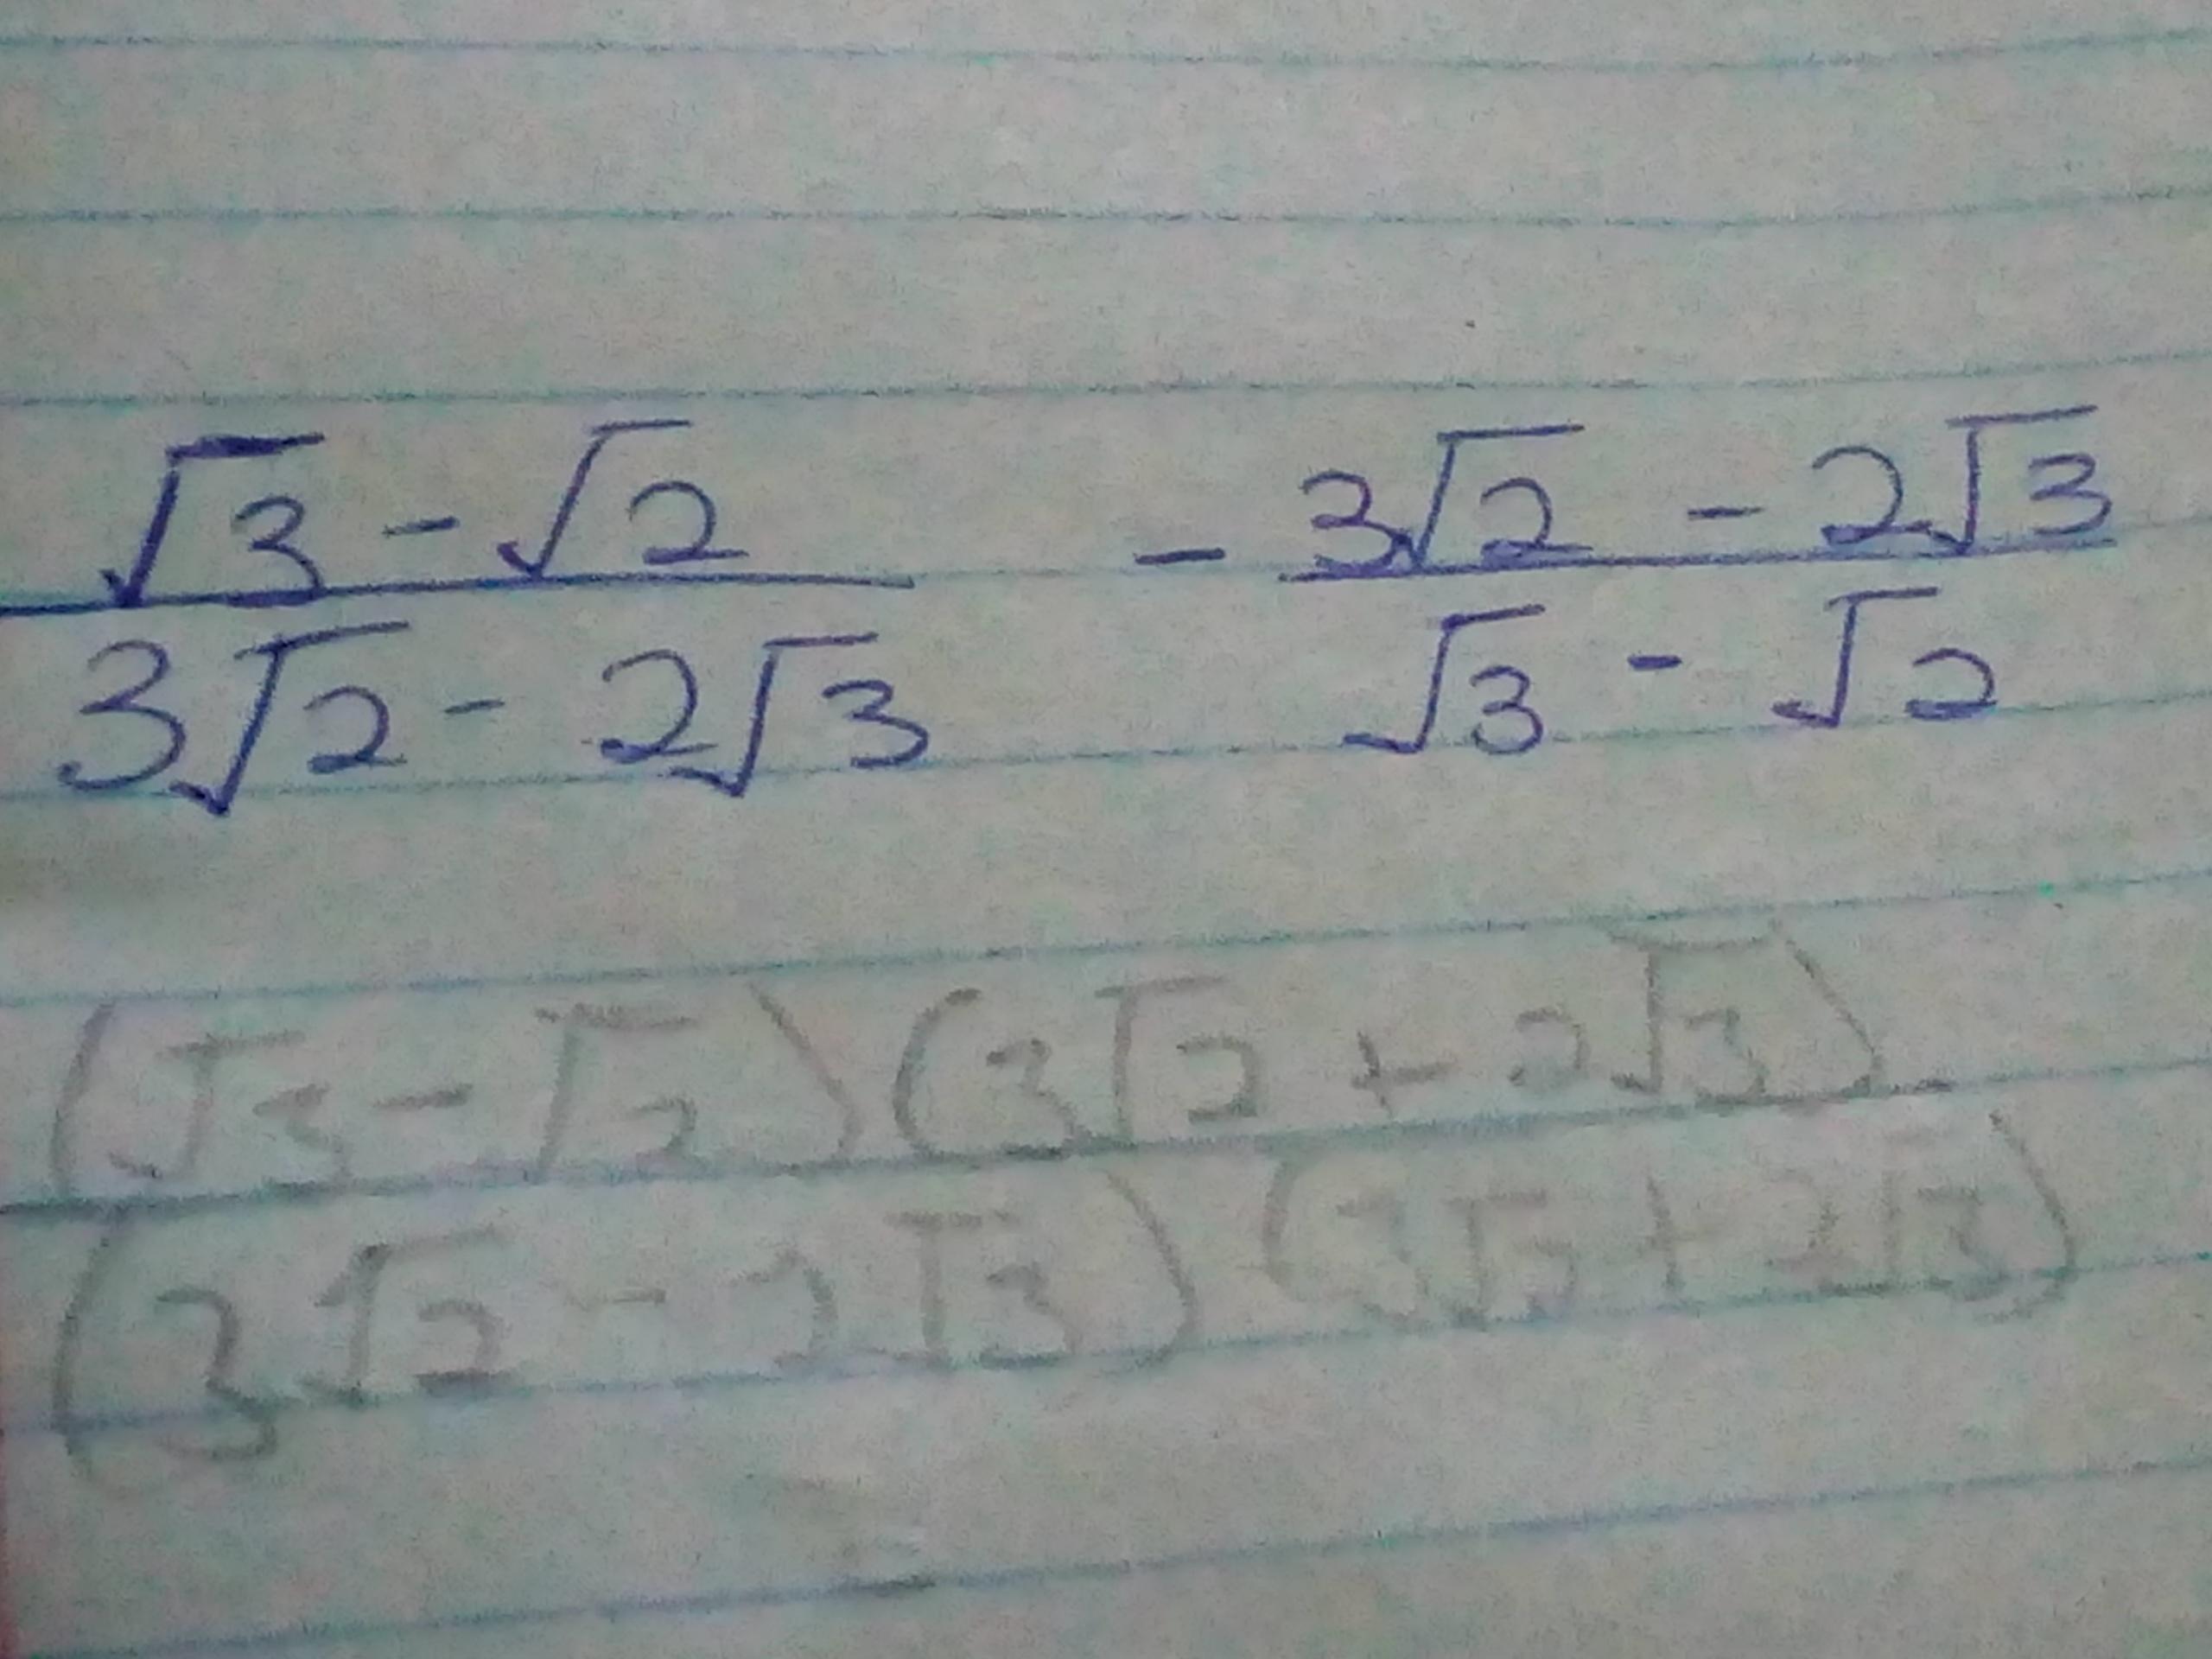 √3 - √2 - 3√2 - 2√3
3√2 - 2√3 √3 - √2
(√3 - √2) (3√2 + 2√3)
(3√2 - 2√3) (3√2 + 2√3)